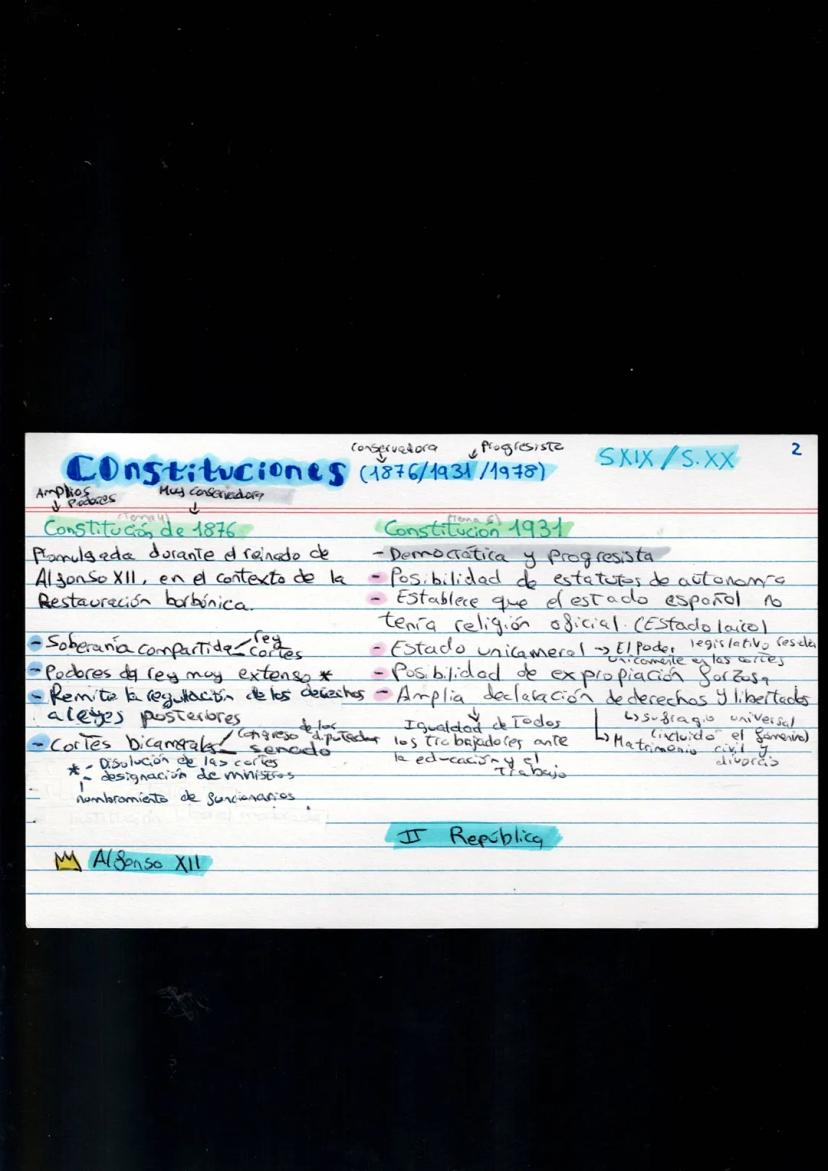 conservadora
Progresista
2
Constituciones (1876/1931/1978)
S.XIX / S.XX
Amplios Poderes
Muy conservadora
(Tema 4)
Constitución de 1876
Promulgada durante el reinado de
Alfonso XII, en el contexto de la
Restauración borbónica.
- Soberanía compartida rey
cortes
- Poderes del rey muy extenso *
- Remite la regulación de los derechos
a leyes posteriores
- Cortes bicamerales congreso de los diputados
senado
* - Disolución de las cortes
- designación de ministros
nombramiento de funcionarios
Alfonso XII
Constitución 1931
- Democrática y progresista
- Posibilidad de estatutos de autonomía
- Establece que el estado español no
tenía religión oficial. (Estado laico)
- Estado unicameral → El Poder legislativo reside
unicamente en las cortes
- Posibilidad de expropiación forzosa
- Amplia declaración de derechos y libertades
Igualdad de Todos
los trabajadores ante
la educación y el
Trabajo
sufragio universal
(incluido el femenino)
Matrimonio civil y
divorcio
II República